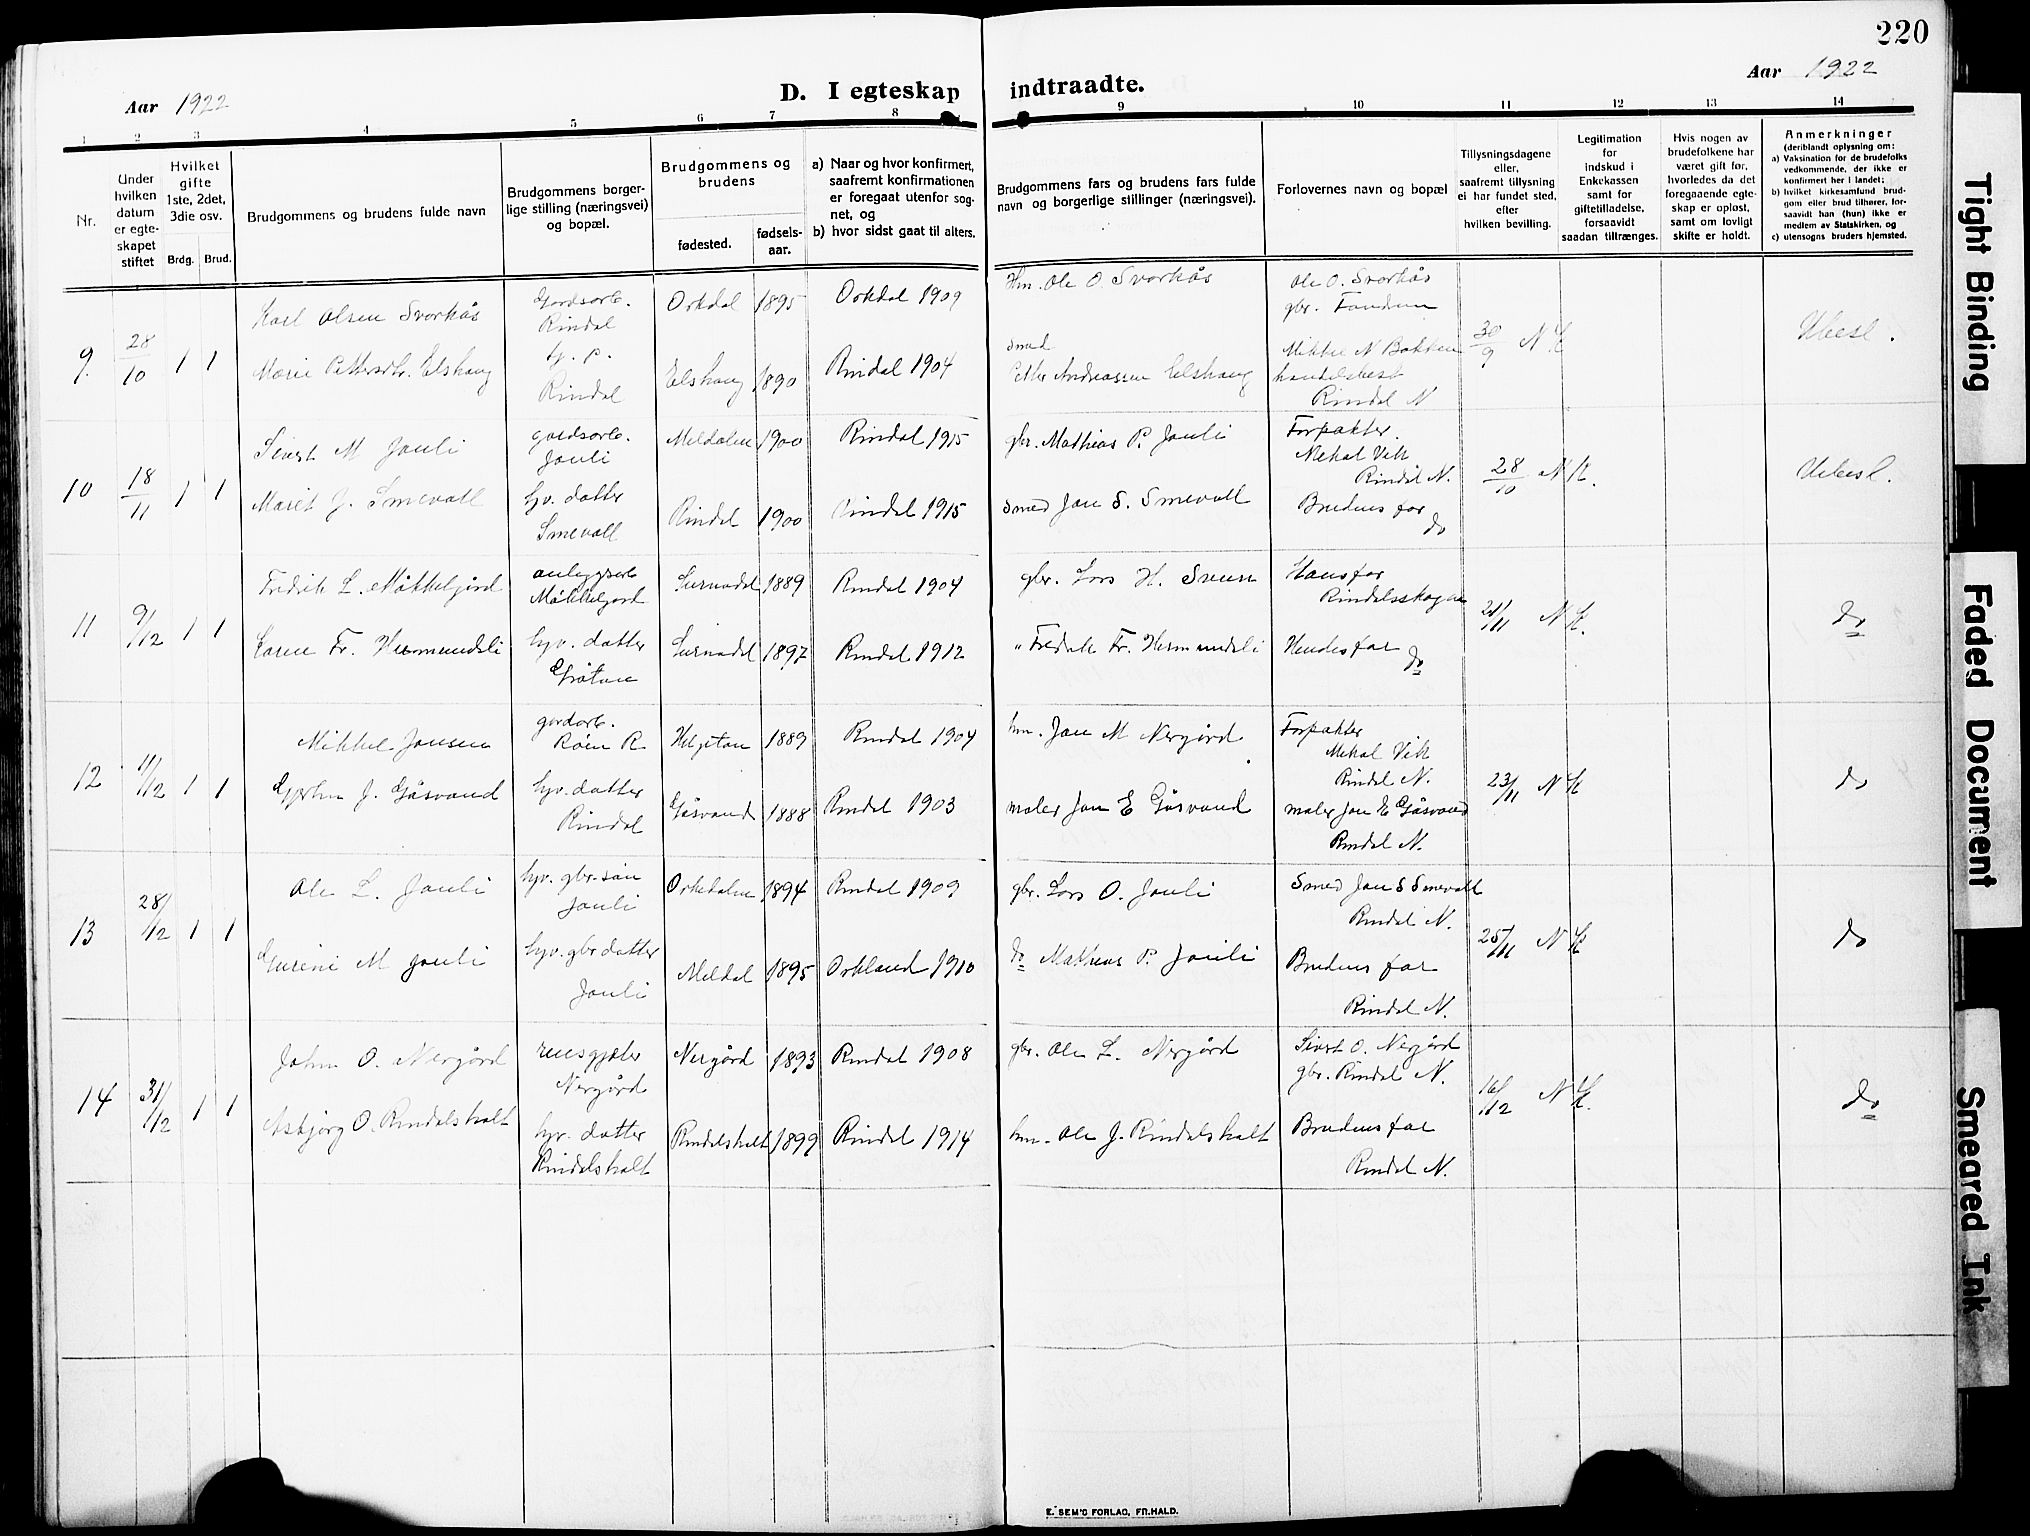 220
Aar 1922
D. I egteskap indtraadte.
Aar 1922
1 2 3 4 5 6 7 8 9 10 11 12 13 14
Nr.
Under hvilken datum er egte-skapet stiftet
Hvilket gifte 1ste, 2det, 3die osv.
Brdg. Brud.
Brudgommens og brudens fulde navn
Brudgommens borger-lige stilling (næringsvei) og bopæl.
Brudgommens og brudens
fødested.
fødsels-aar.
a) Naar og hvor konfirmert, saafremt konfirmationen er foregaat utenfor sog-net, og
b) hvor sidst gaat til alters.
Brudgommens fars og brudens fars fulde navn og borgerlige stillinger (næringsvei).
Forlovernes navn og bopæl
Tillysningsdagene eller, saafremt tillysning ei har fundet sted, efter hvilken bevilling.
Legitimation for indskud i Enkekassen samt for giftetilladelse, forsaavidt saadan tiltrænges.
Hvis nogen av brudefolkene har været gift før, hvorledes da det foregaaende egte-skap er opløst, samt om lovligt skifte er holdt.
Anmerkninger
(deriblandt oplysning om:
a) Vaksination for de brudefolks vedkommende, der ikke er konfirmert her i landet;
b) hvilket kirkesamfund brud-gom eller brud tilhører, for-saavidt han (hun) ikke er medlem av Statskirken, og
c) utensogns bruders hjemsted.
9. 28/10 1 1
Karl Olsen Svorkås
Gårdsarb. Rindal
Orkdal 1895
Orkdal 1909
Hm. Ole O. Svorkås
Ole O. Svorkås
gbr. Fandrem
30/9 N K
Ubesl.
Marie Pettersdtr. Elshaug
Rindal
Elshaug 1890
Rindal 1904
smed
Petter Andreassen Elshaug
Mikkel N Bakken
handelsbest
Rindal N
10 18/11 1 1
Sivert M Jouli
gardsarb. Jouli
Meldalen 1900
Rindal 1915
gbr. Mathias P. Jouli
Forpakter.
Mekal Vik
Rindal N.
28/10 N K.
Ubesl.
Marit J. Smevoll
hjv. datter
Smevoll
Rindal 1900
Rindal 1915
smed Jon S. Smevoll
Brudens far
do
11 9/12 1 1
Fredrik L. Mikkelgjerd
anleggsarb
Surnadal 1889
Rindal 1904
gbr. Lars H. Sveen
Hans far
Rindalsskogen
21/11 N K.
do
Karen Fr. Hermundsli
hjv. datter
Grøtan
Surnadal 1897
Rindal 1912
" Fredrik Fr. Hermundsli
Hendes far
do
12 11/12 1 1
Mikkel Jonsen
gardarb.
Røen R.
Helgetun 1889
Rindal 1904
hm. Jon M Nergård
Forpakter
Mekal Vik
Rindal N.
23/11 N K
do
J. Gåsvand
hjv. datter
Rindal
Gåsvand 1888
Rindal 1903
maler Jon E Gåsvand
maler Jon E Gåsvand
Rindal N.
13 28/12 1 1
Ole L. Jouli
hjv. gbr. søn
Jouli
Orkedalen 1894
Rindal 1909
gbr. Lars O. Jouli
Smed Jon S Smevoll
Rindal N.
25/11 N K
do
Gurine M Jouli
hjv. gbr datter
Jouli
Meldal 1895
Orkland 1910
do Mathias P. Jouli
Brudens far
Rindal N.
14 31/12 1 1
John O. Nergård
rensgjæter
Nergård
Nergård 1893
Rindal 1908
gbr. Ole L. Nergård
Sivert O. Nergård
gbr. Rindal N.
16/12 N K.
do
Asbjørg O. Rindalsholt
hjv. datter
Rindalsholt
Rindalsholt 1899
Rindal 1914
hm. Ole J. Rindalsholt
Brudens far
Rindal N.
E. SEM'S FORLAG, FR.HALD.
Tight Binding
Faded Document
Smeared Ink